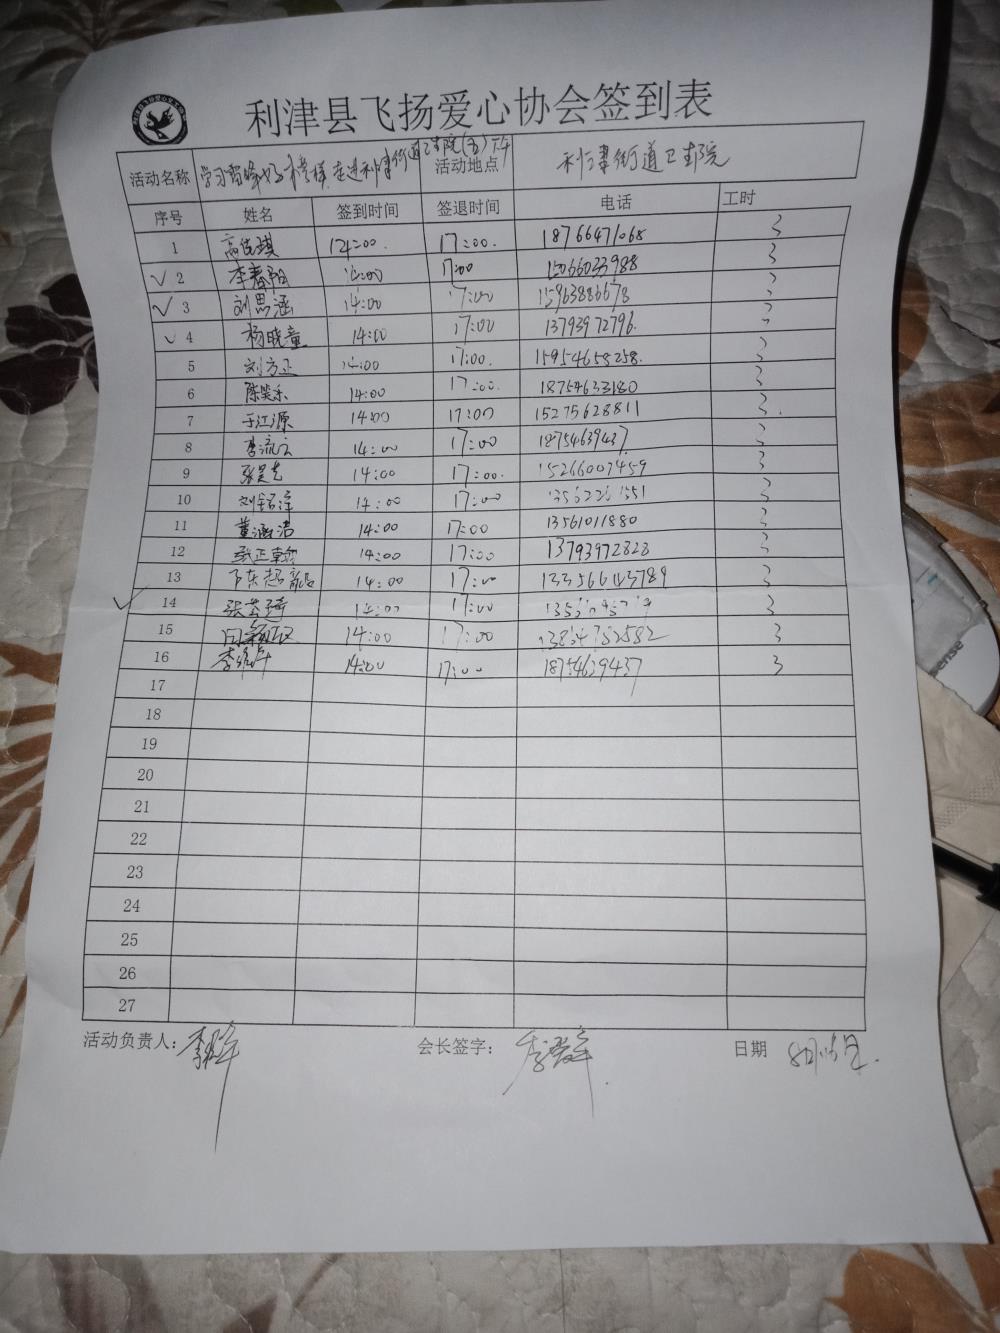 利津县飞扬爱心协会签到表
活动名称 学习雷锋好榜样 走进利津街道卫生院(五)下午 活动地点 利津街道卫生院
序号 姓名 签到时间 签退时间 电话 工时
1 高佳琪 14:00. 17:00. 18766471068 3
✓ 2 李春阳 14:00 17:00 15066033988 3
✓ 3 刘思涵 14:00 17:00 15963886678 3
✓ 4 杨晓童 14:00 17:00 13793972796. 3
5 刘方正 14:00 17:00. 15954658258. 3
6 陈奕乐 14:00 17:00. 18754633180 3
7 于江源 14:00 17:00 15275628811 3.
8 李流云 14:00 17:00 18754639437 3
9 张昊 14:00 17:00. 15266007459 3
10 刘铭泽 14:00 17:00 3
11 董涵洁 14:00 17:00 13561011880 3
12 张正 14:00 17:00 13793972828 3
13 14:00 17:00 13356643789 3
✓ 14 张芸 14:00 17:00 3
15 14:00 17:00 13854752582 3
16 李 14:00 17:00 18754639437 3
17
18
19
20
21
22
23
24
25
26
27
活动负责人: 李 会长签字: 李 日期 8月 日.